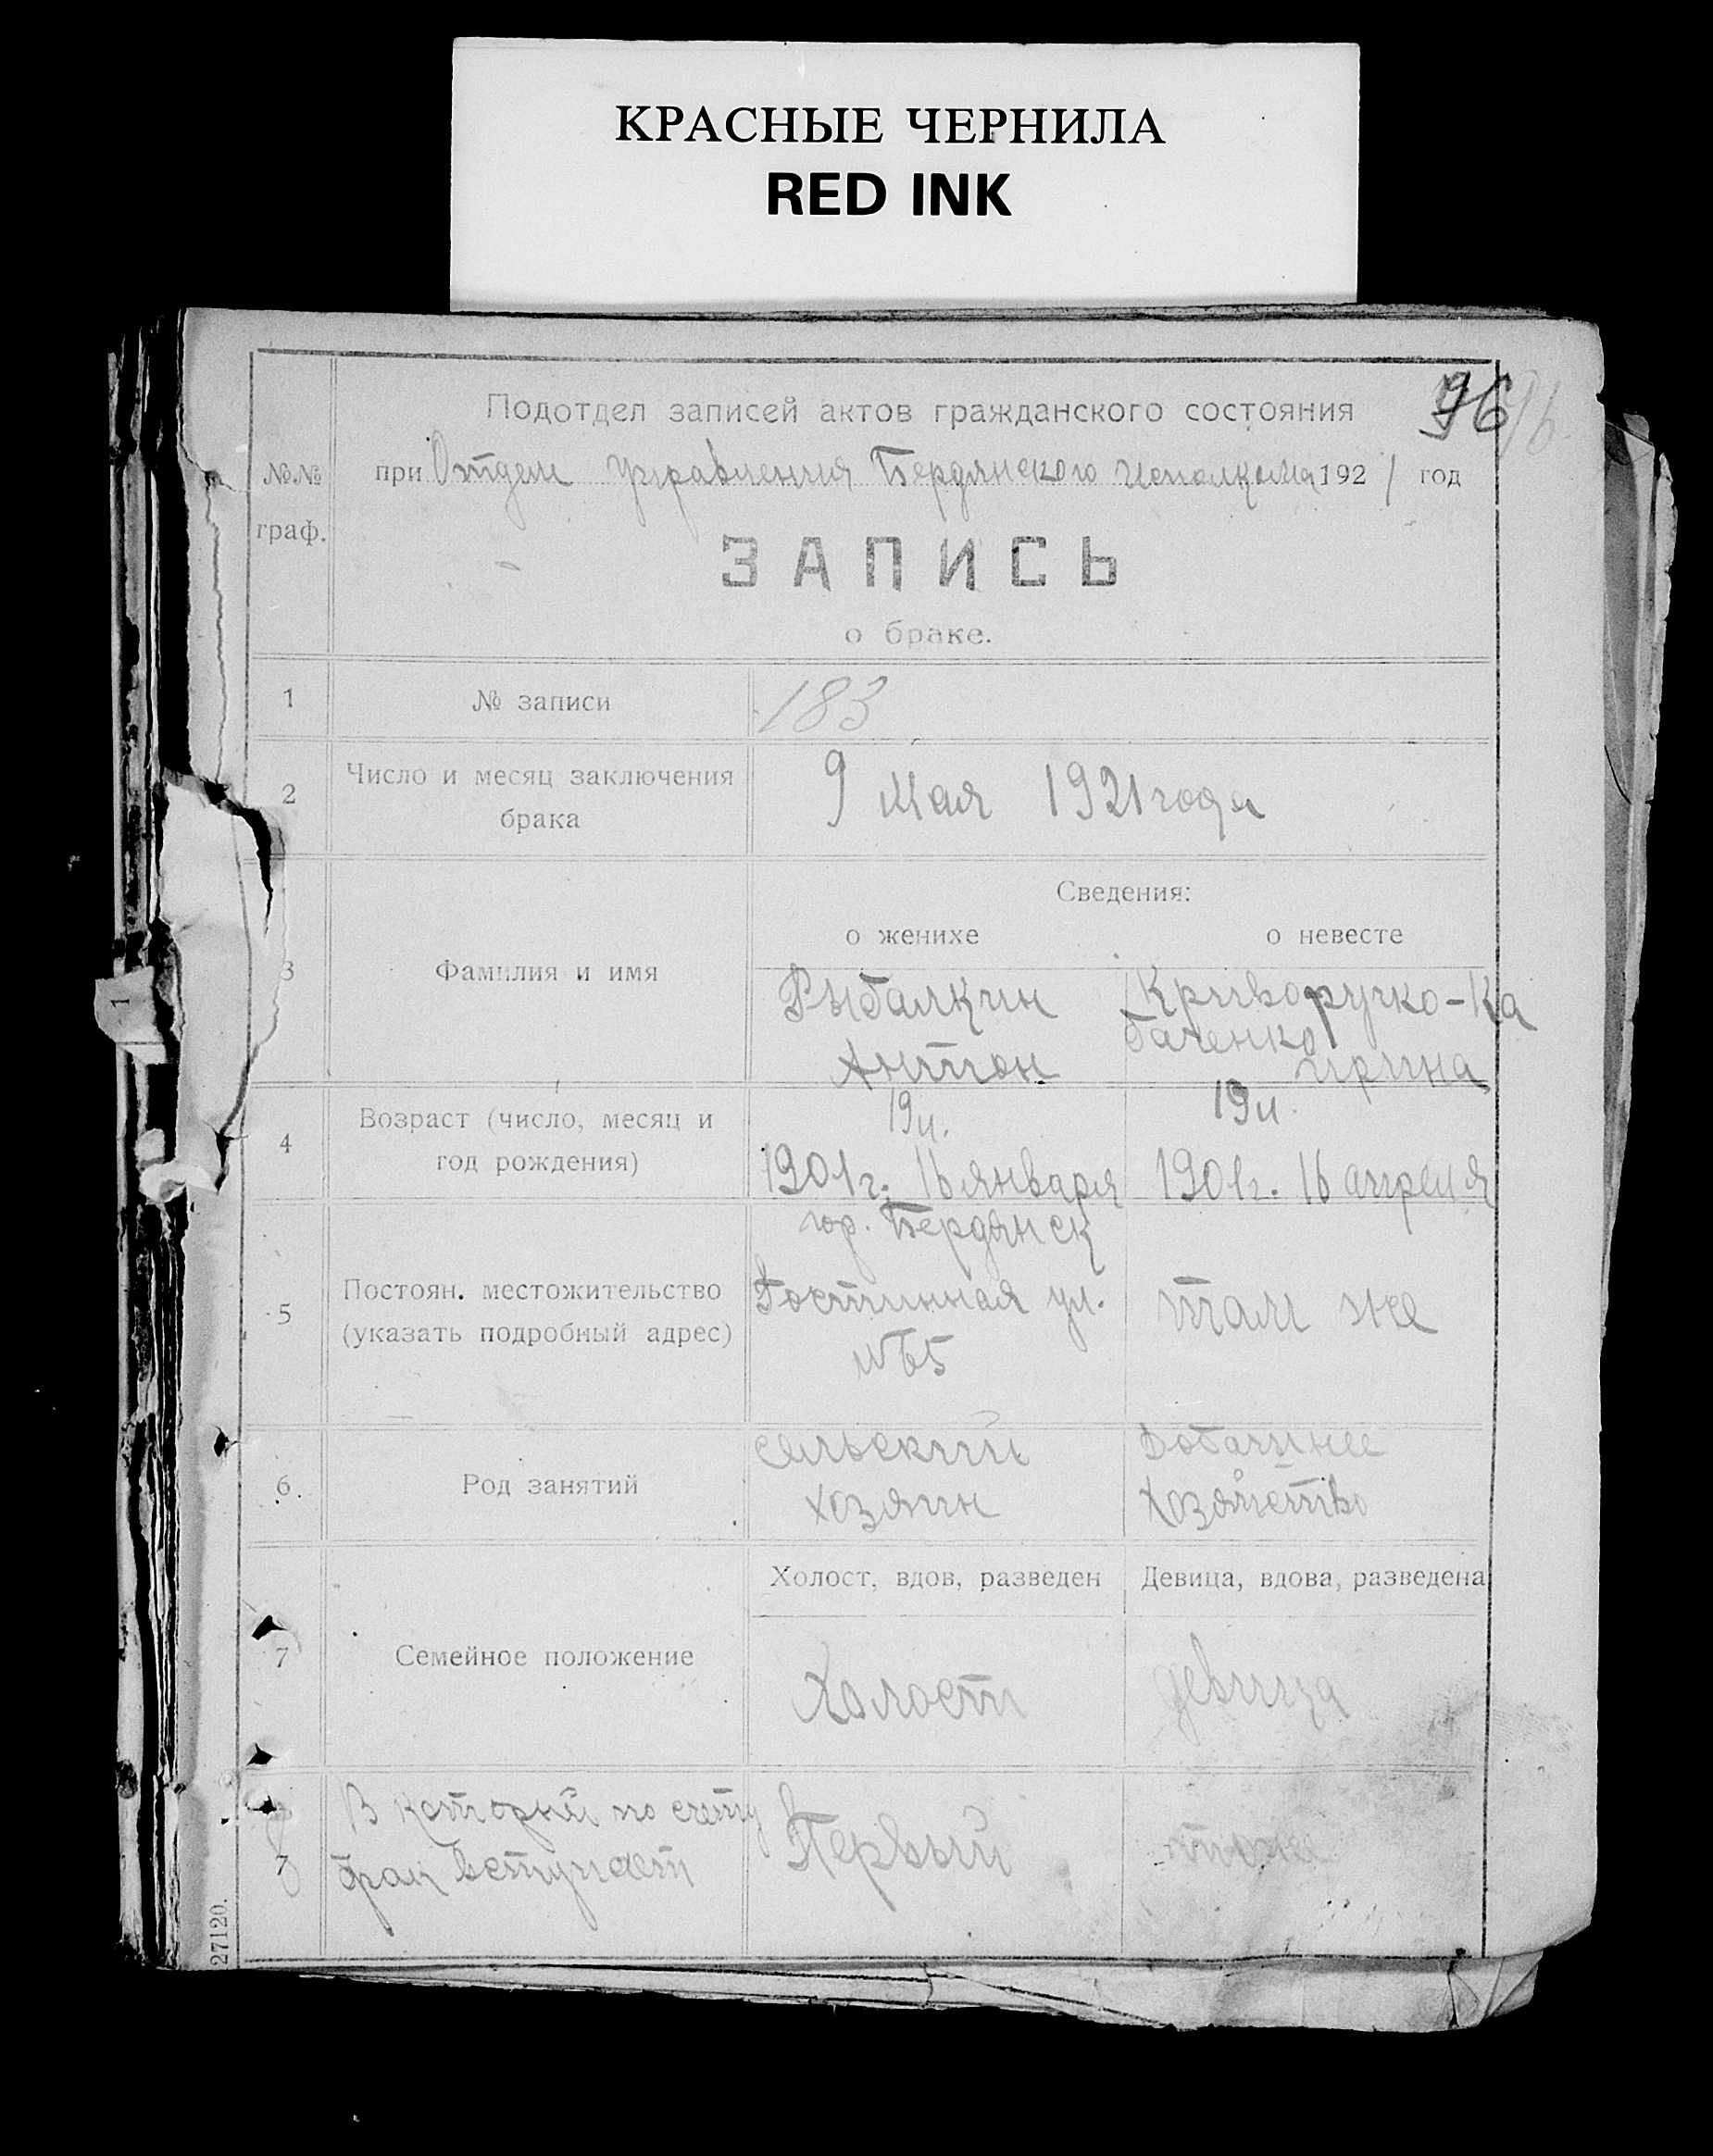 КРАСНЫЕ ЧЕРНИЛА
RED INK
96 96
Подотдел записей актов гражданского состояния
№№ граф.
при Отделе Управления Бердянского Исполкома 1921 год
ЗАПИСЬ
о браке.
1 № записи 183
2 Число и месяц заключения брака 9 мая 1921 года
Сведения:
о женихе о невесте
3 Фамилия и имя
Рыбалкин Криворучко-Ка
баченко
Антон Ирина
4 Возраст (число, месяц и год рождения)
19 л. 19 л.
1901 г. 16 января 1901 г. 16 апреля
5 Постоян. местожительство (указать подробный адрес)
гор. Бердянск
Гостинная ул. там же
№65
6. Род занятий
сельский
хозяин хозяйство
Холост, вдов, разведен Девица, вдова, разведена
7 Семейное положение
Холост девица
7 В который по счету
брак вступает
Первый тоже
27120.
1